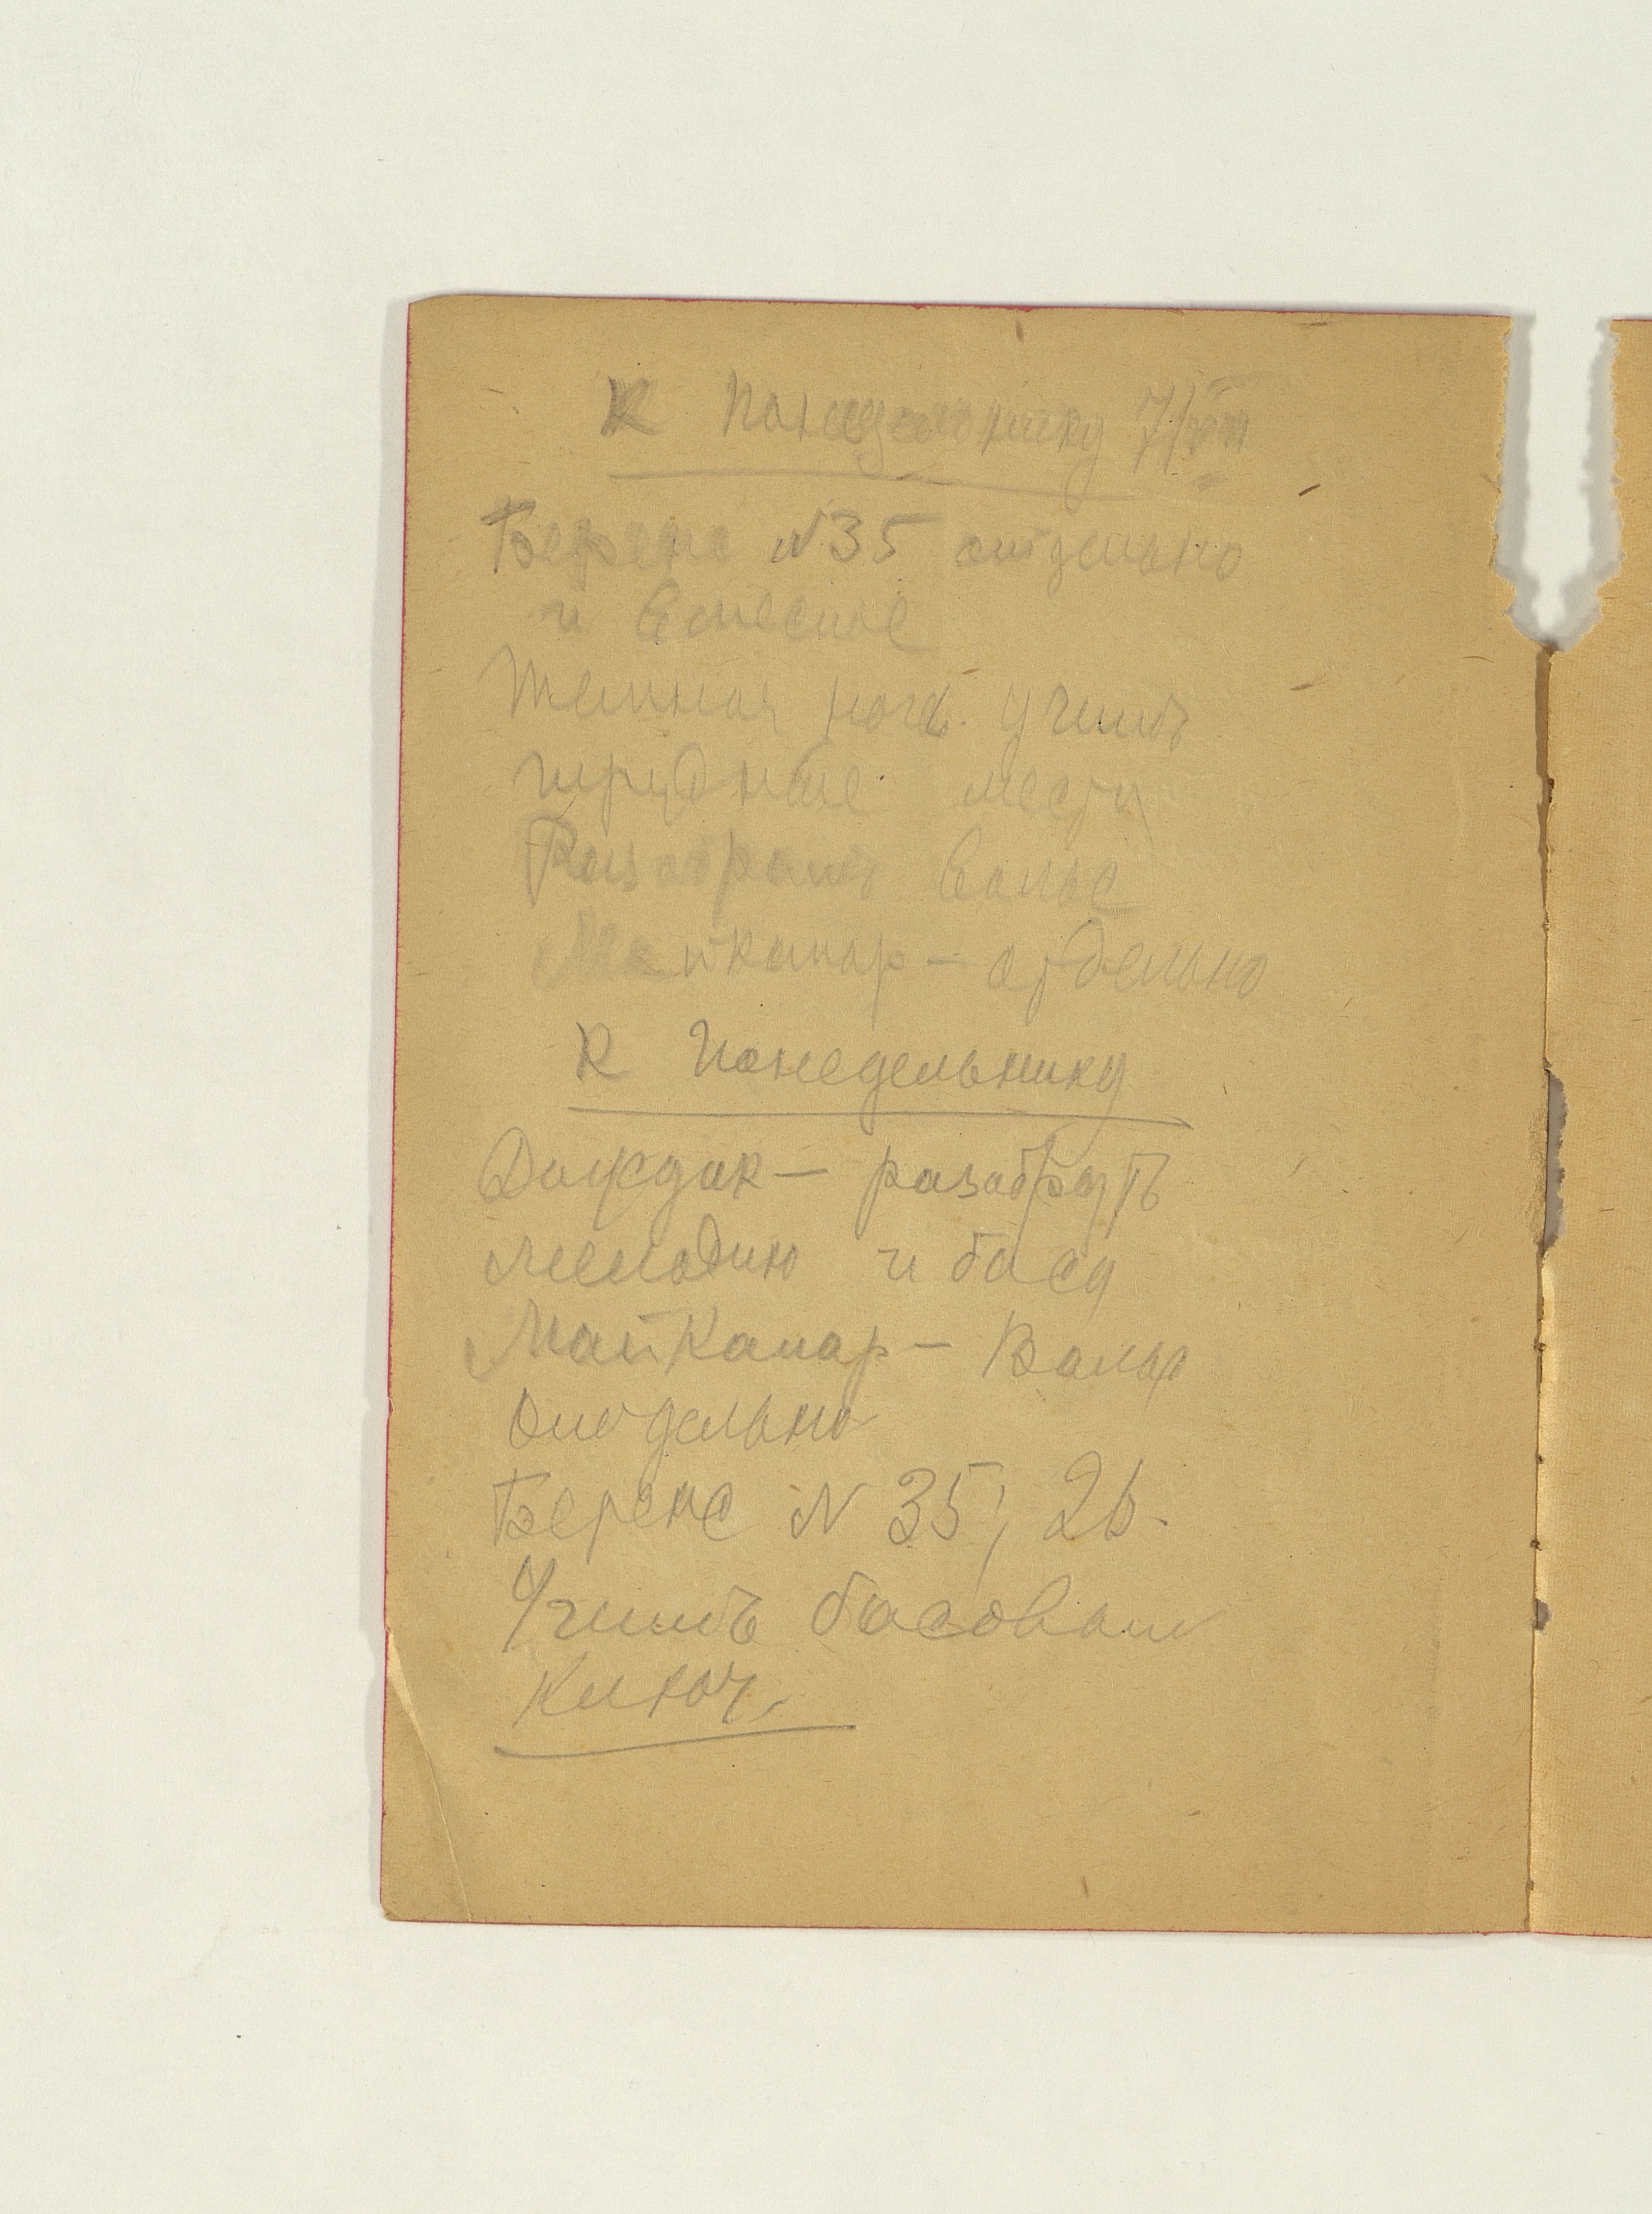 К понедельнику 7/VIII
Беренс N35 отдельно
и вместе
Темная ночь. учить
трудные места
Разобрать вальс
Майкапар – отдельно
К понедельнику
Дождик – разобрать
мелодию и баса
Майкапар – Вальс
Отдельно
Беренс N 35; 26.
Учить басовый
ключ.